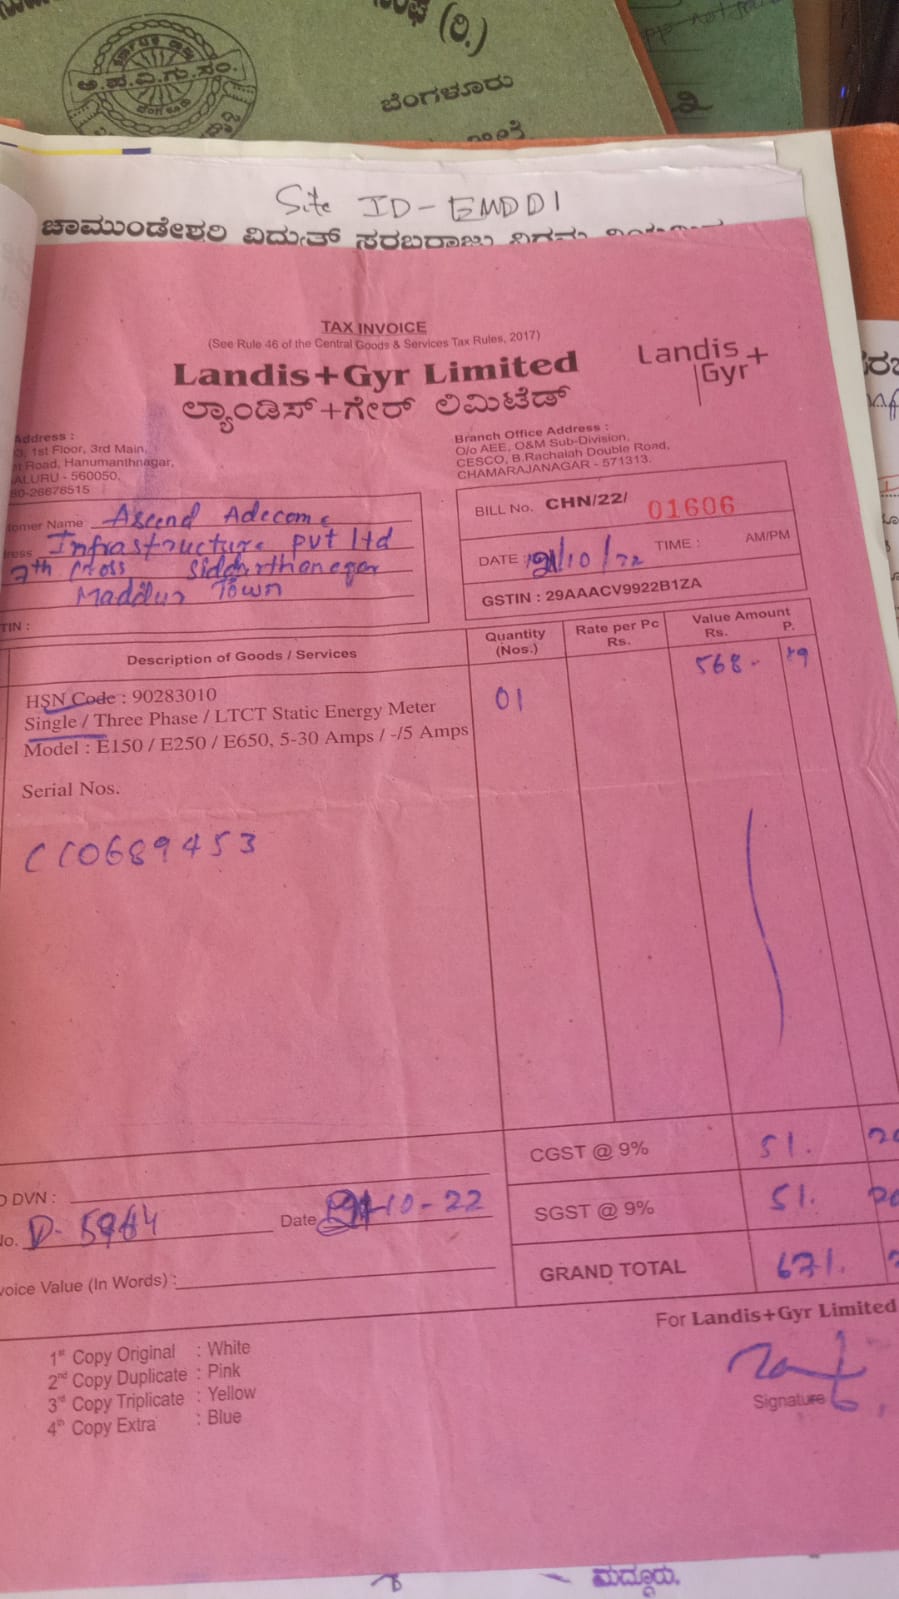 (ರಿ.)
ಅ.ಪ.ವಿ.ಗು.ಸಂ.
ಬೆಂಗಳೂರು
Site ID - EMDD1
ಚಾಮುಂಡೇಶ್ವರಿ ವಿದ್ಯುತ್ ಸರಬರಾಜು ನಿಗಮ
TAX INVOICE
(See Rule 46 of the Central Goods & Services Tax Rules, 2017)
Landis+Gyr Limited
ಲ್ಯಾಂಡಿಸ್+ಗೇರ್ ಲಿಮಿಟೆಡ್
Landis
Gyr+
Address :
1st Floor, 3rd Main,
Road, Hanumanthnagar,
ALURU - 560050.
80-26678515
Branch Office Address :
O/o AEE, O&M Sub-Division,
CESCO, B.Rachaiah Double Road,
CHAMARAJANAGAR - 571313.
tomer Name Ascend Adecome
ress Infrastructure pvt ltd
7th Cross Siddhrthanegar
Maddur Town
TIN :
BILL No. CHN/22/ 01606
DATE : /10/22 TIME : AM/PM
GSTIN : 29AAACV9922B1ZA
Description of Goods / Services
Quantity (Nos.)
Rate per Pc Rs.
Value Amount Rs. P.
HSN Code : 90283010
Single / Three Phase / LTCT Static Energy Meter
Model : E150 / E250 / E650, 5-30 Amps / -/5 Amps
01
568-
Serial Nos.
CC0689453
CGST @ 9% 51.
SGST @ 9% 51.
GRAND TOTAL 671.
DVN :
No. D- Date -10-22
voice Value (In Words) :
1st Copy Original : White
2nd Copy Duplicate : Pink
3rd Copy Triplicate : Yellow
4th Copy Extra : Blue
For Landis+Gyr Limited
Signature
ಮದ್ದೂರು.